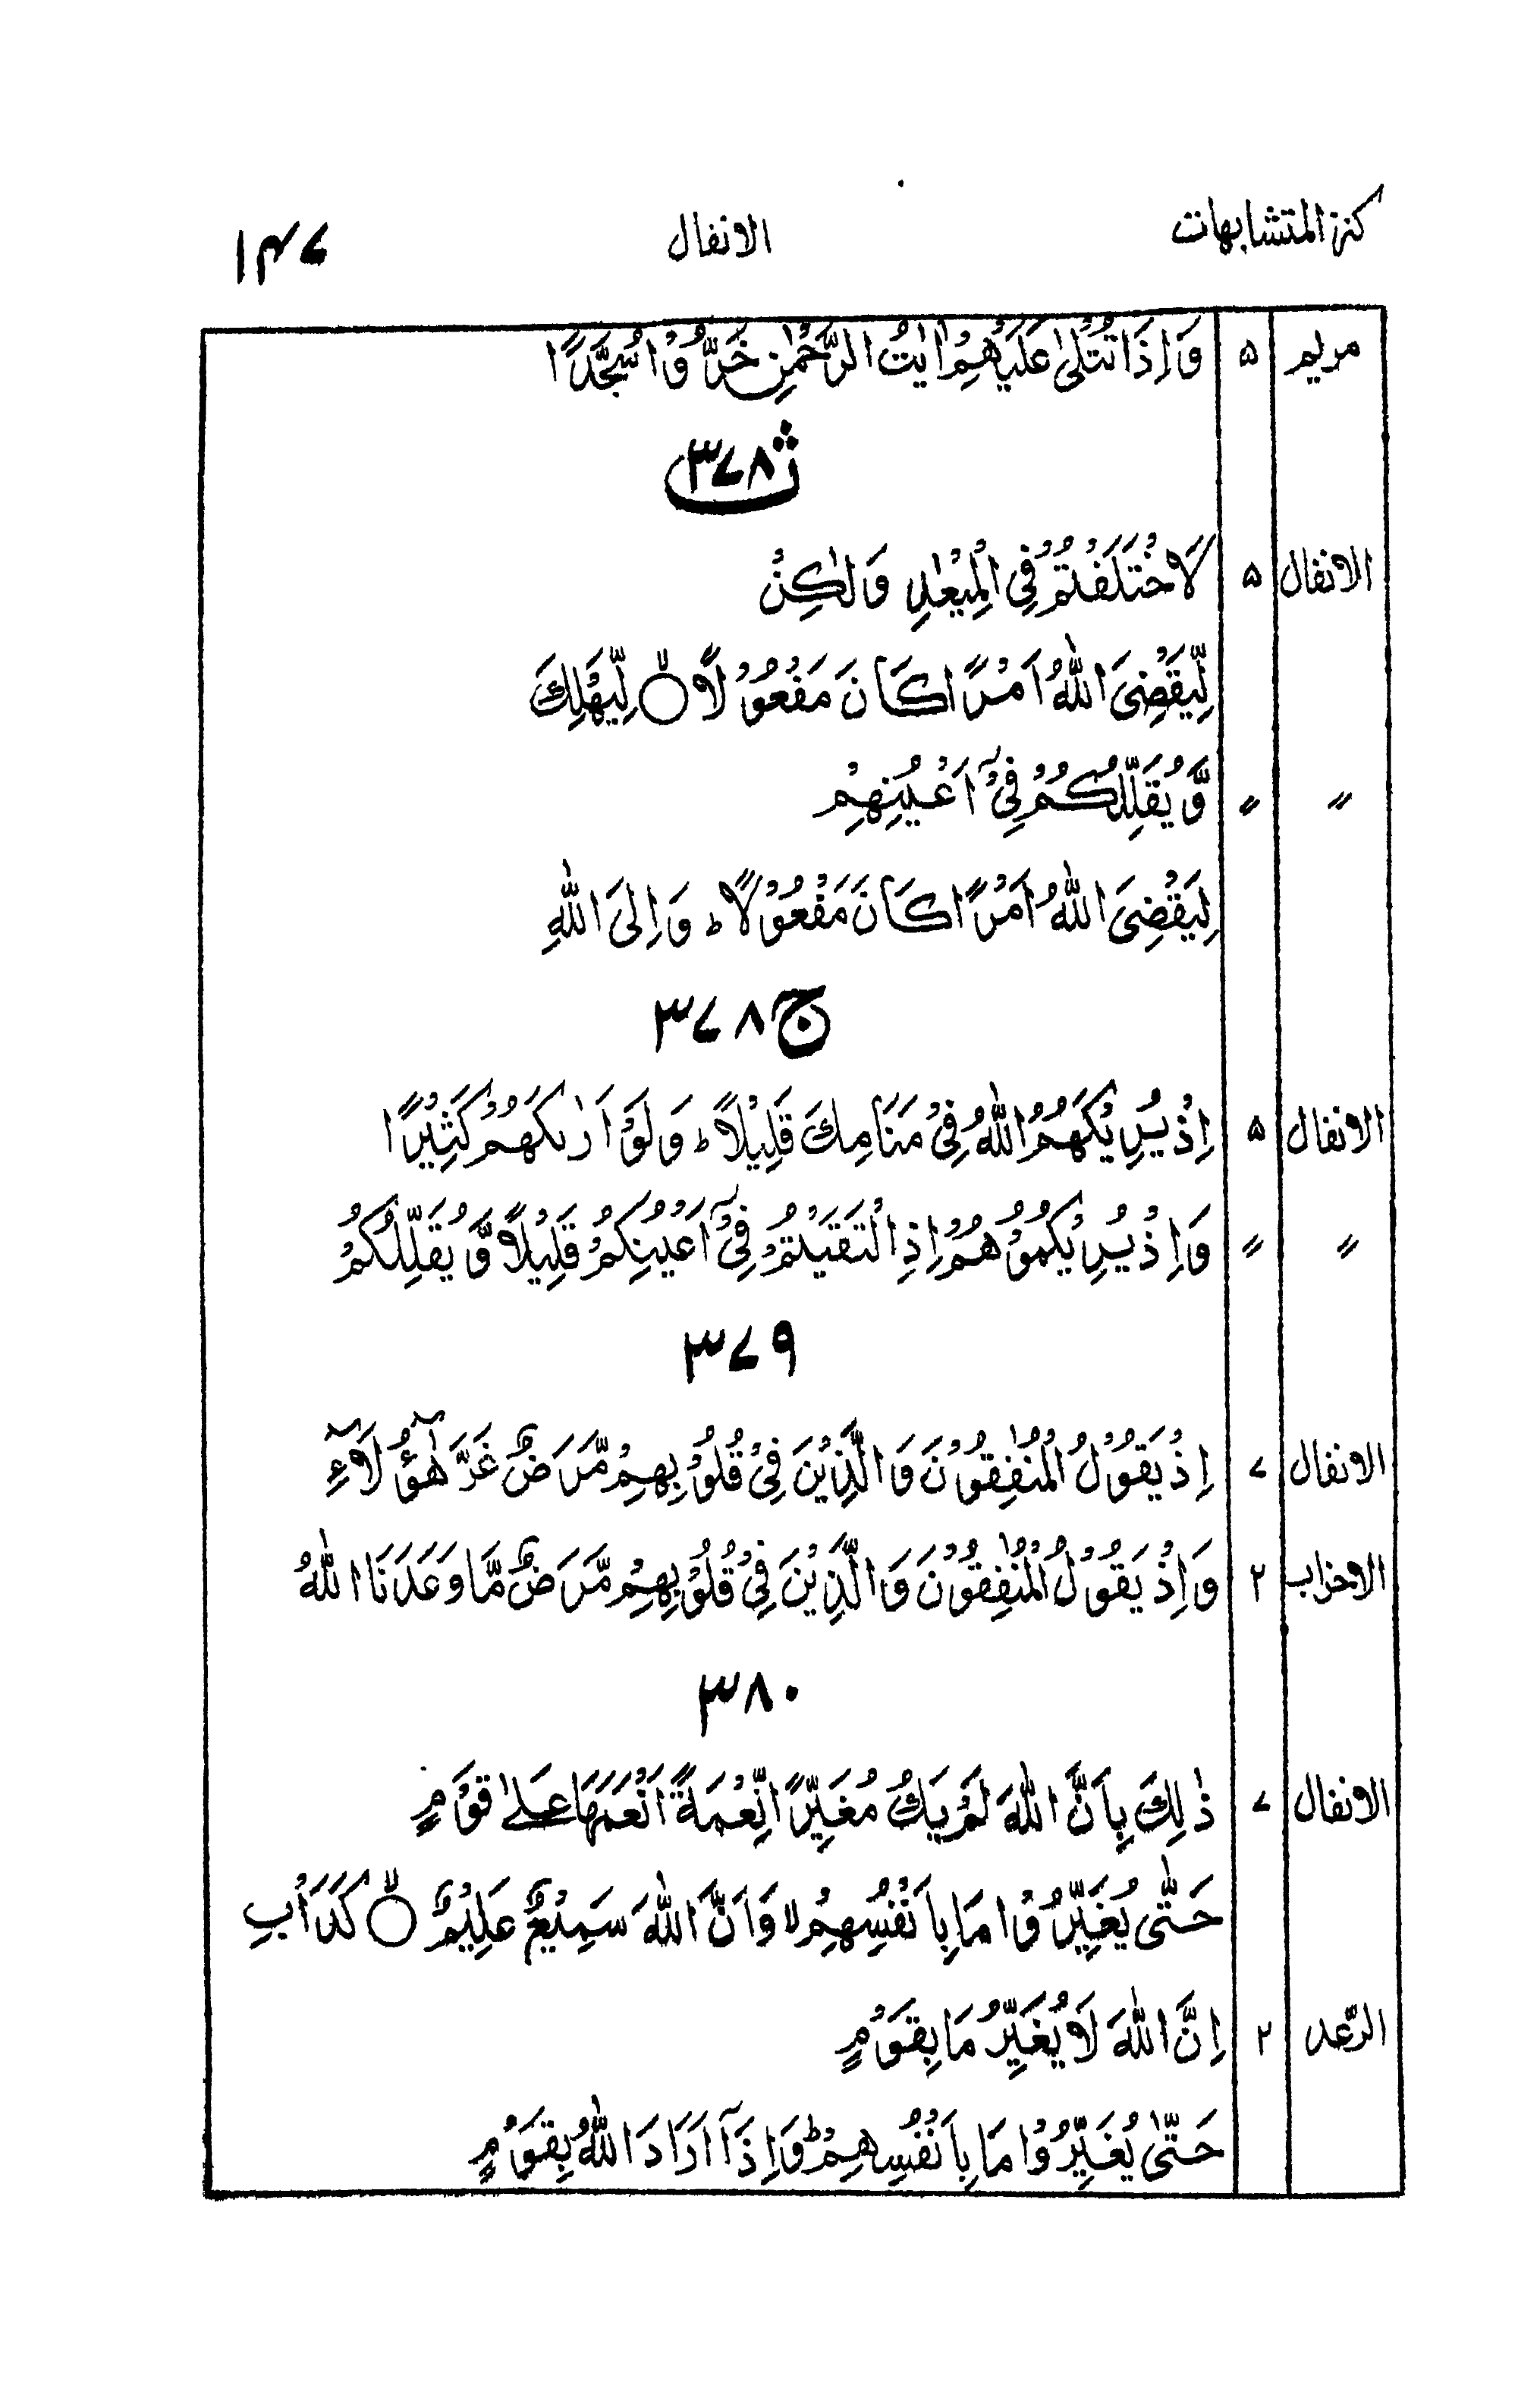 كنز المتشابهات الانفال ۱۴۷
مريم ۵ وَاِذَا تُتْلٰى عَلَيْهِمْ اٰيٰتُ الرَّحْمٰنِ خَرُّوْا سُجَّدًا
ث ۳۷۸
الانفال ۵ لَاخْتَلَفْتُمْ فِى الْمِيْعٰدِ وَلٰكِنْ
لِّيَقْضِىَ اللّٰهُ اَمْرًا كَانَ مَفْعُوْلًا ۙ لِّيَهْلِكَ
〃 〃 وَّيُقَلِّلُكُمْ فِىْٓ اَعْيُنِهِمْ
لِيَقْضِىَ اللّٰهُ اَمْرًا كَانَ مَفْعُوْلًا ؕ وَاِلَى اللّٰهِ
ج ۳۷۸
الانفال ۵ اِذْ يُرِيْكَهُمُ اللّٰهُ فِىْ مَنَامِكَ قَلِيْلًا ؕ وَلَوْ اَرٰىكَهُمْ كَثِيْرًا
〃 〃 وَاِذْ يُرِيْكُمُوْهُمْ اِذِ الْتَقَيْتُمْ فِىْٓ اَعْيُنِكُمْ قَلِيْلًا وَّيُقَلِّلُكُمْ
۳۷۹
الانفال ۷ اِذْ يَقُوْلُ الْمُنٰفِقُوْنَ وَالَّذِيْنَ فِىْ قُلُوْبِهِمْ مَّرَضٌ غَرَّ هٰٓؤُلَآءِ
الاحزاب ۲ وَاِذْ يَقُوْلُ الْمُنٰفِقُوْنَ وَالَّذِيْنَ فِىْ قُلُوْبِهِمْ مَّرَضٌ مَّا وَعَدَنَا اللّٰهُ
۳۸۰
الانفال ۷ ذٰلِكَ بِاَنَّ اللّٰهَ لَمْ يَكُ مُغَيِّرًا نِّعْمَةً اَنْعَمَهَا عَلٰى قَوْمٍ
حَتّٰى يُغَيِّرُوْا مَا بِاَنْفُسِهِمْ ۙ وَاَنَّ اللّٰهَ سَمِيْعٌ عَلِيْمٌ ۙ كَدَاْبِ
الرّعد ۲ اِنَّ اللّٰهَ لَا يُغَيِّرُ مَا بِقَوْمٍ
حَتّٰى يُغَيِّرُوْا مَا بِاَنْفُسِهِمْ ؕ وَاِذَآ اَرَادَ اللّٰهُ بِقَوْمٍ